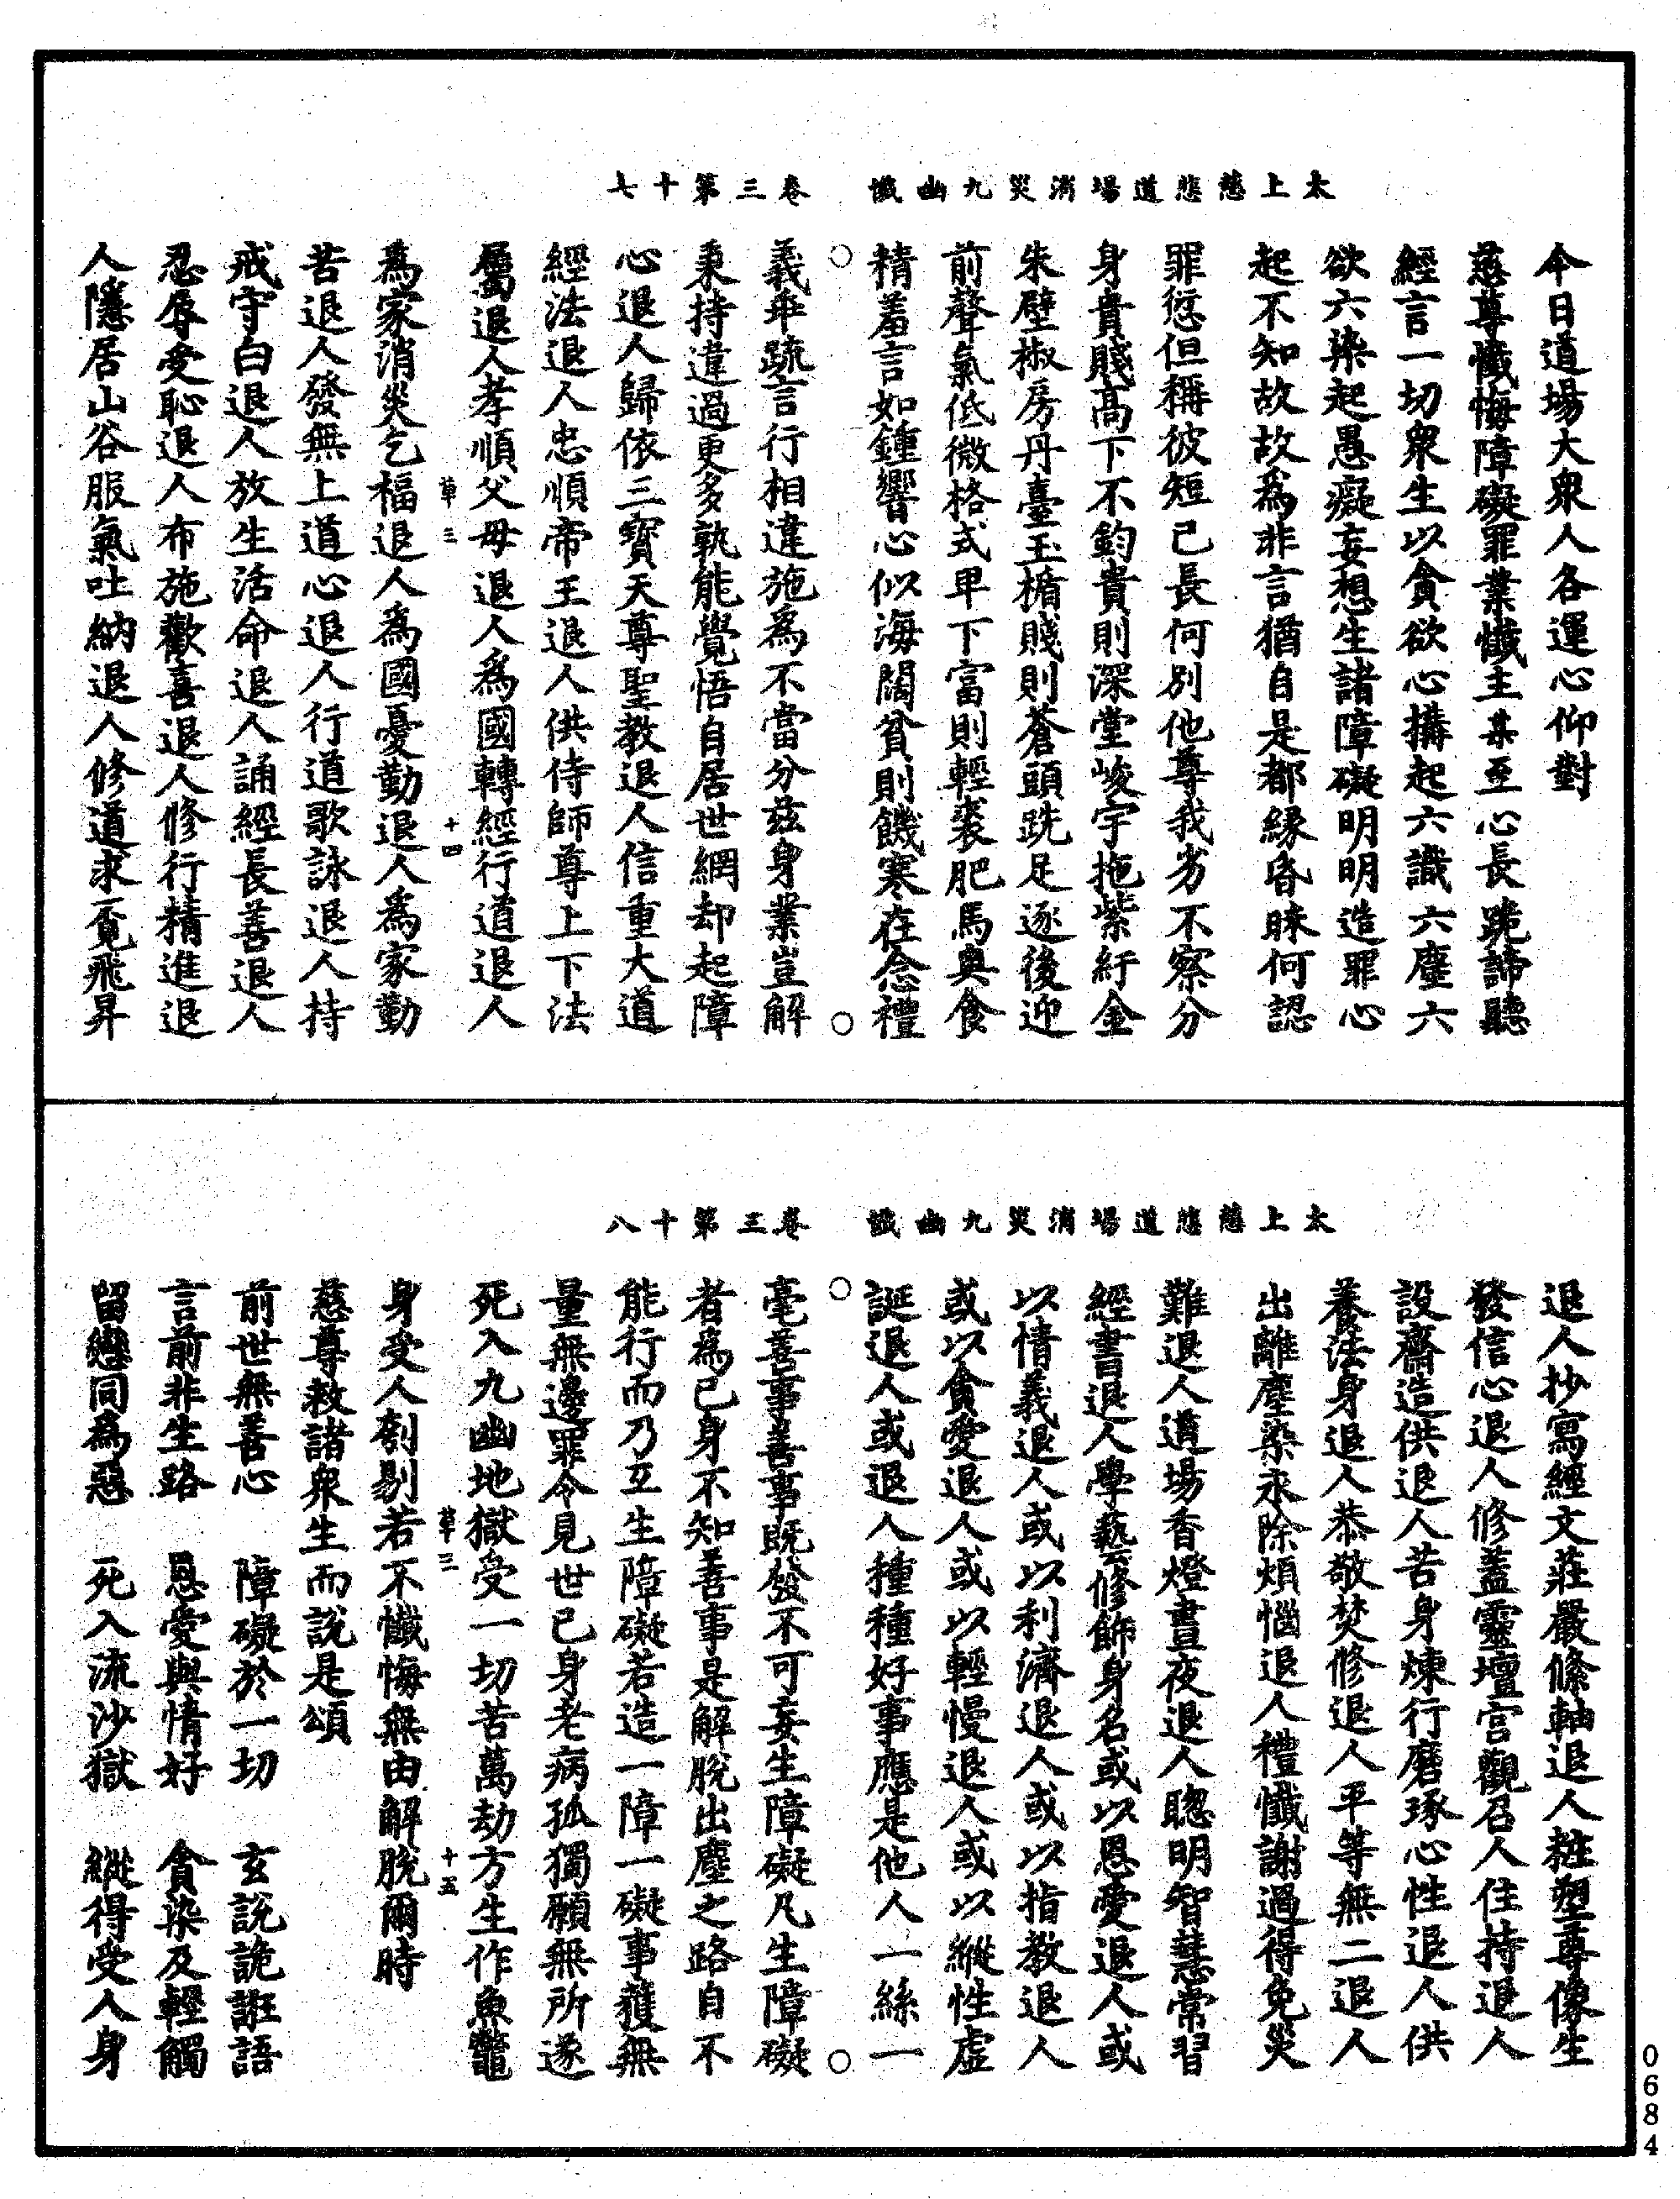 太上慈悲道場消災九幽懺　卷三第十七
今日道場大衆人各運心仰對
慈尊懺悔障礙罪業懺主某至心長跪諦聽
經言一切衆生以貪欲心搆起六識六塵六
欲六染起愚癡妄想生諸障礙明明造罪心
起不知故故爲非言猶自是都緣昏昧何認
罪愆但稱彼短己長何别他尊我劣不察分
身貴賤高下不鈞貴則深堂峻宇拖紫紆金
朱壁椒房丹臺玉楯賤則蒼頭跣足逐後迎
前聲氣低微格式卑下富則輕裘肥馬輿食
精羞言如鍾響心似海闊貧則饑寒在念禮
義乖疏言行相違施爲不當分兹身業豈解
秉持違過更多孰能覺悟自居世網却起障
心退人歸依三寶天尊聖教退人信重大道
經法退人忠順帝王退人供侍師尊上下法
屬退人孝順父母退人爲國轉經行道退人
草三　十四
爲家消災乞福退人爲國憂勤退人爲家勤
苦退人發無上道心退人行道歌詠退人持
戒守白退人放生活命退人誦經長善退人
忍辱受恥退人布施歡喜退人修行精進退
人隱居山谷服氣吐納退人修道求覓飛昇
太上慈悲道場消災九幽懺　卷三第十八
退人抄寫經文莊嚴絛軸退人粧塑尊像生
發信心退人修蓋靈壇宫觀召人住持退人
設齋造供退人苦身煉行磨琢心性退人供
養法身退人恭敬焚修退人平等無二退人
出離塵染永除煩惱退人禮懺謝過得免災
難退人道場香燈晝夜退人聰明智慧常習
經書退人學藝修飾身名或以恩愛退人或
以情義退人或以利濟退人或以指教退人
或以貪愛退人或以輕慢退人或以縱性虛
誕退人或退人種種好事應是他人一絲一
毫善事善事既發不可妄生障礙凡生障礙
者爲己身不知善事是解脱出塵之路自不
能行而乃互生障礙若造一障一礙事獲無
量無邊罪今見世已身老病孤獨願無所遂
死入九幽地獄受一切苦萬劫方生作魚鼈
草三　十五
身受人刳剔若不懺悔無由解脱爾時
慈尊救諸衆生而說是頌
前世無善心　障礙於一切　玄說詭誑語
言前非生路　恩愛與情好　貪染及輕觸
留戀同爲惡　死入流沙獄　縱得受人身
0684